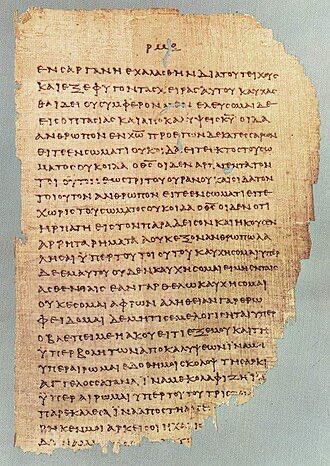 ρμε
ΕΝ ϹΑΡΓΑΝΗ ΕΧΑΛΑϹΘΗΝ ΔΙΑ ΤΟΥ ΤΕΙΧΟΥϹ
ΚΑΙ ΕΞΕΦΥΓΟΝ ΤΑϹ ΧΕΙΡΑϹ ΑΥΤΟΥ ΚΑΥΧΑϹ
ΘΑΙ ΔΕΙ ΟΥ ϹΥΜΦΕΡΟΝ ΜΕΝ ΕΛΕΥϹΟΜΑΙ ΔΕ
ΕΙϹ ΟΠΤΑϹΙΑϹ ΚΑΙ ΑΠΟΚΑΛΥΨΕΙϹ Κ̅Υ̅ ΟΙΔΑ
ΑΝΘΡΩΠΟΝ ΕΝ Χ̅Ρ̅Ω̅ ΠΡΟ ΕΤΩΝ ΔΕΚΑΤΕϹϹΑΡΩΝ
ΕΙΤΕ ΕΝ ϹΩΜΑΤΙ ΟΥΚ ΟΙΔΑ ΕΙΤΕ ΕΚΤΟϹ ΤΟΥ ϹΩ
ΜΑΤΟϹ ΟΥΚ ΟΙΔΑ Ο Θ̅Ϲ̅ ΟΙΔΕΝ ΑΡΠΑΓΕΝΤΑ ΤΟΝ
ΤΟΙΟΥΤΟΝ ΕΩϹ ΤΡΙΤΟΥ ΟΥΡΑΝΟΥ ΚΑΙ ΟΙΔΑ ΤΟΝ
ΤΟΙΟΥΤΟΝ ΑΝΘΡΩΠΟΝ ΕΙΤΕ ΕΝ ϹΩΜΑΤΙ ΕΙΤΕ
ΧΩΡΙϹ ΤΟΥ ϹΩΜΑΤΟϹ ΟΥΚ ΟΙΔΑ Ο Θ̅Ϲ̅ ΟΙΔΕΝ ΟΤΙ
ΗΡΠΑΓΗ ΕΙϹ ΤΟΝ ΠΑΡΑΔΕΙϹΟΝ ΚΑΙ ΗΚΟΥϹΕΝ
ΑΡΡΗΤΑ ΡΗΜΑΤΑ Α ΟΥΚ ΕΞΟΝ ΑΝΘΡΩΠΩ ΛΑ
ΛΗϹΑΙ ΫΠΕΡ ΤΟΥ ΤΟΙΟΥΤΟΥ ΚΑΥΧΗϹΟΜΑΙ ΫΠΕΡ
ΔΕ ΕΜΑΥΤΟΥ ΟΥΔΕΝ ΚΑΥΧΗϹΟΜΑΙ ΕΙ ΜΗ ΕΝ ΤΑΙϹ
ΑϹΘΕΝΕΙΑΙϹ ΕΑΝ ΓΑΡ ΘΕΛΩ ΚΑΥΧΗϹΟΜΑΙ
ΟΥΚ ΕϹΟΜΑΙ ΑΦΡΩΝ ΑΛΗΘΕΙΑΝ ΓΑΡ ΕΡΩ
ΦΕΙΔΟΜΑΙ ΔΕ ΜΗ ΤΙϹ ΕΜΕ ΛΟΓΙϹΗΤΑΙ ΫΠΕΡ
Ο ΒΛΕΠΕΙ ΜΕ Η ΑΚΟΥΕΙ ΤΙ ΕΞ ΕΜΟΥ ΚΑΙ ΤΗ
ΫΠΕΡΒΟΛΗ ΤΩΝ ΑΠΟΚΑΛΥΨΕΩΝ ΙΝΑ ΜΗ
ΫΠΕΡΑΙΡΩΜΑΙ ΕΔΟΘΗ ΜΟΙ ϹΚΟΛΟΨ ΤΗ ϹΑΡΚΙ
ΑΓΓΕΛΟϹ ϹΑΤΑΝΑ ΙΝΑ ΜΕ ΚΟΛΑΦΙΖΗ
ΫΠΕΡΑΙΡΩΜΑΙ ΫΠΕΡ ΤΟΥΤΟΥ ΤΡΙϹ
ΠΑΡΕΚΑΛΕϹΑ ΙΝΑ ΑΠΟϹΤΗ
ΡΗΚΕΝ ΜΟΙ ΑΡΚΕΙ ϹΟΙ Η ΧΑΡΙϹ